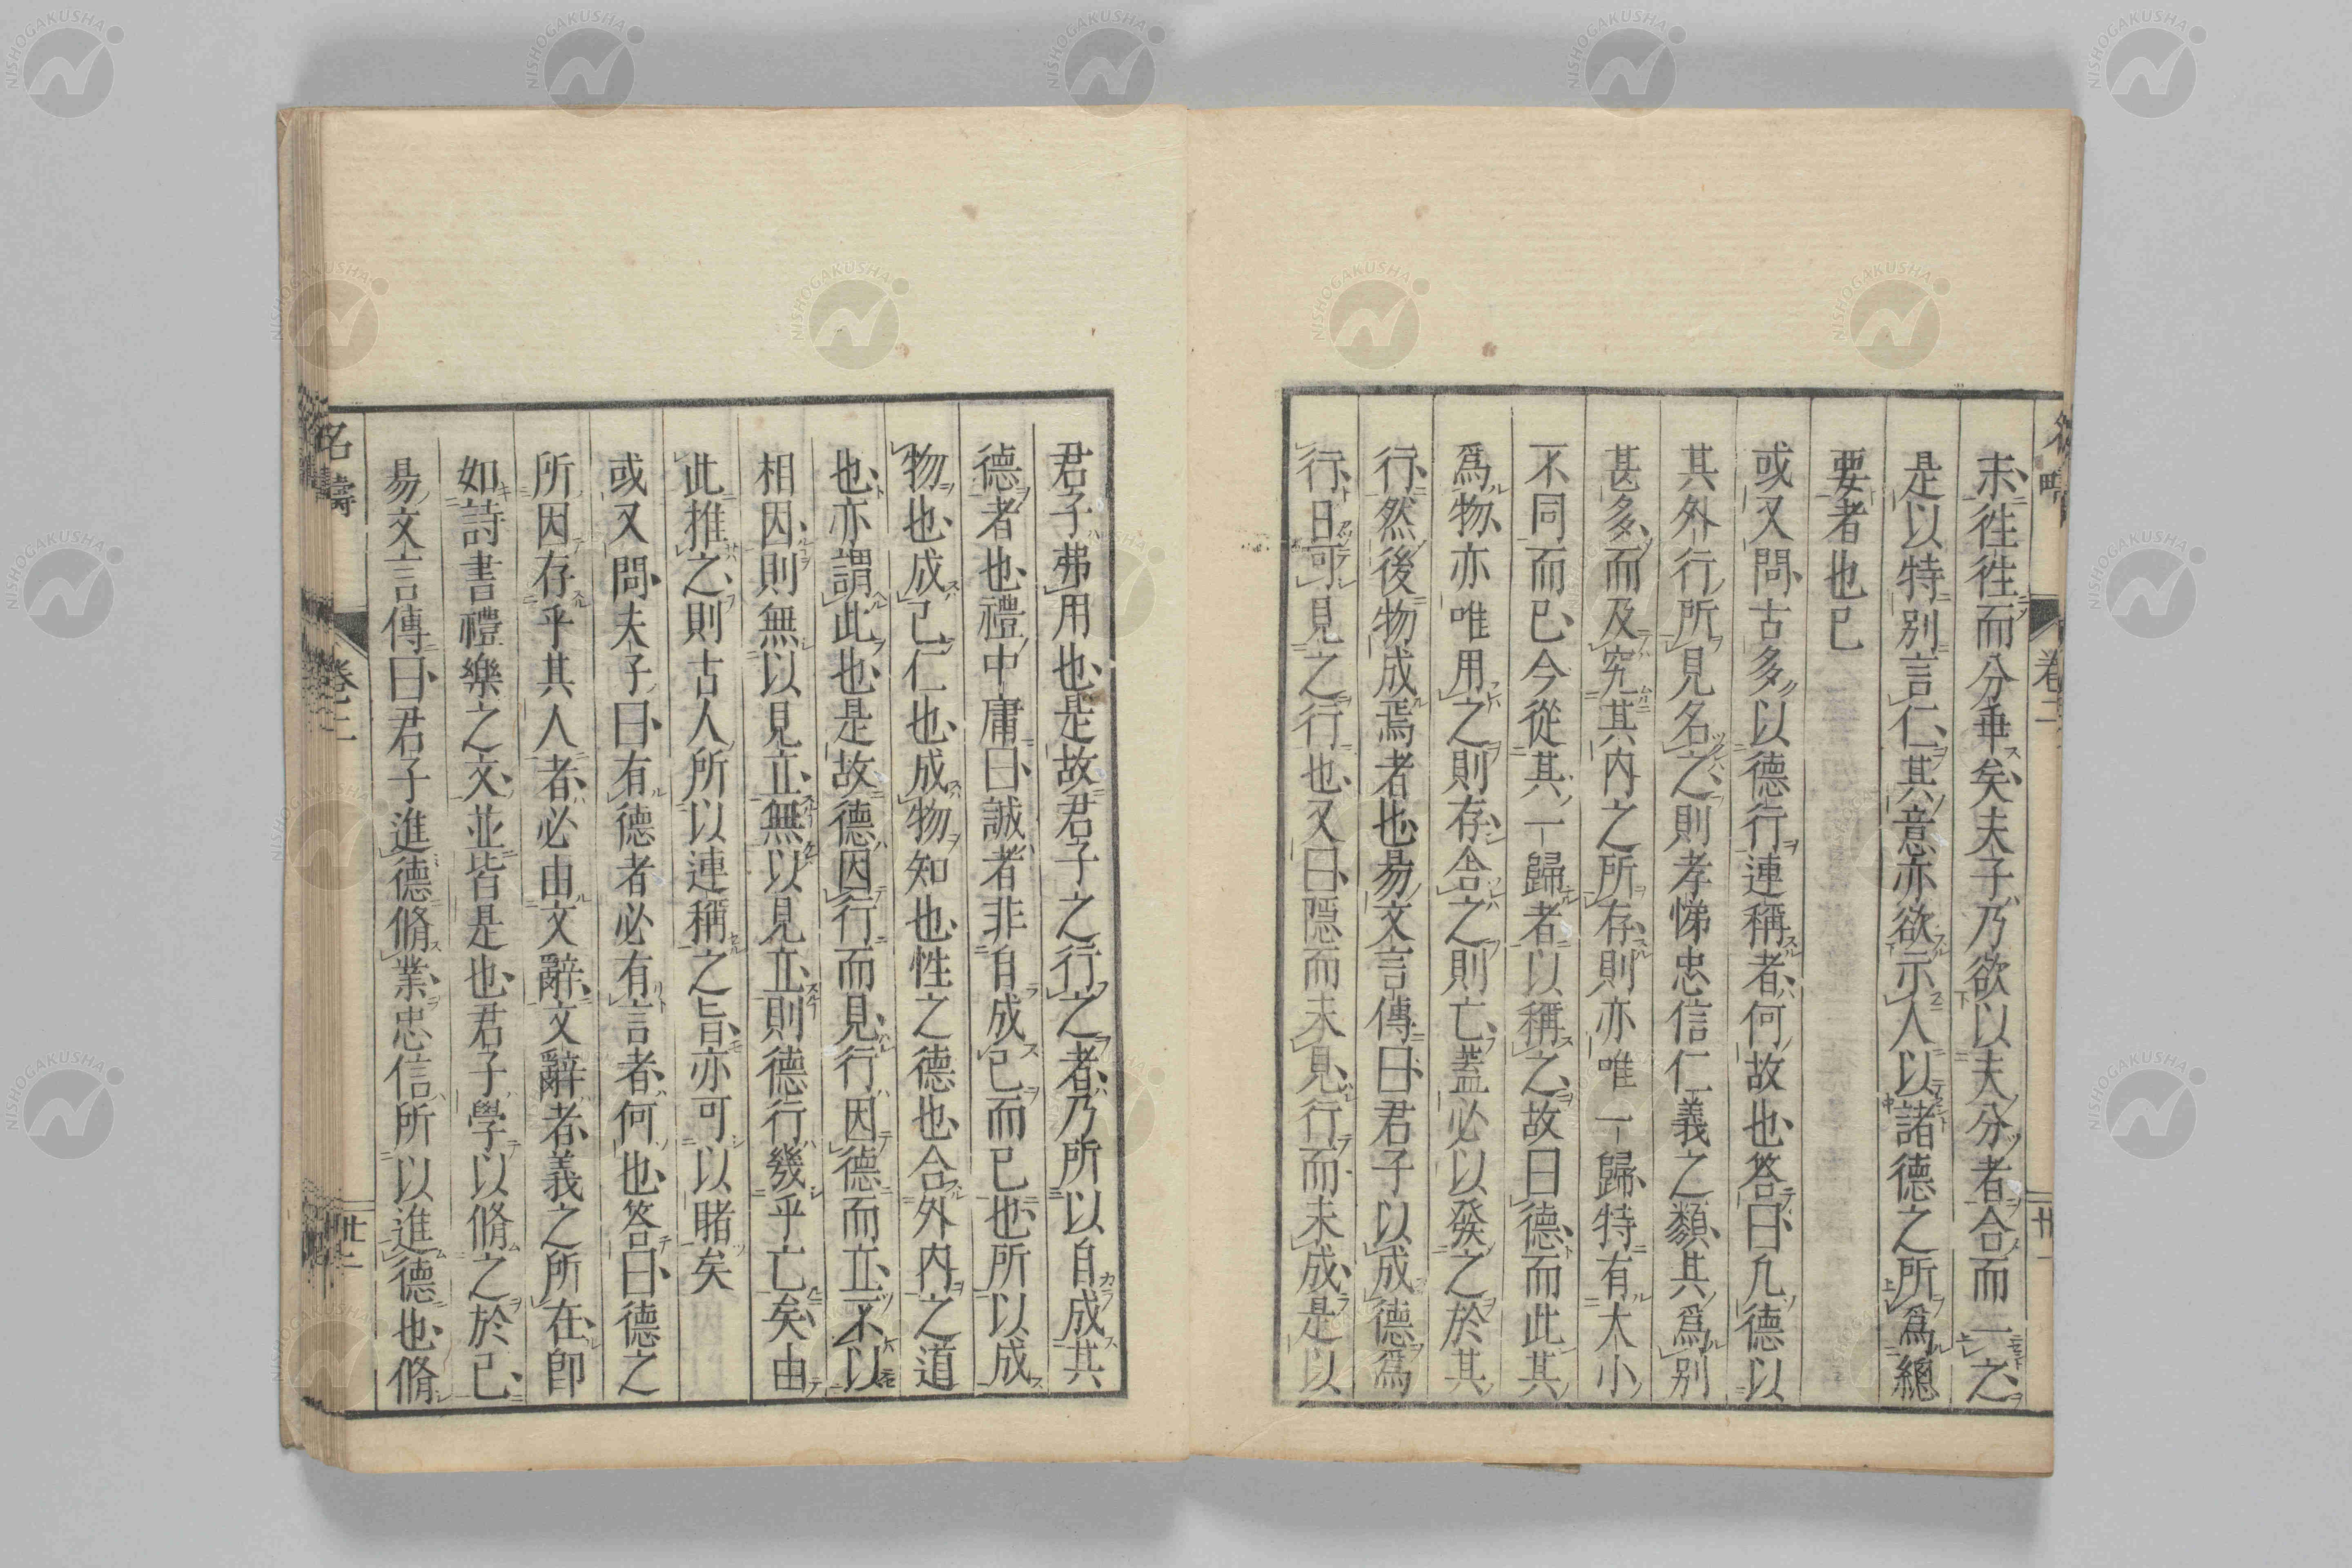 未往往而分垂矣夫子乃欲以夫分者合而一之
是以特別言仁其意亦欲示人以諸德之所爲總
要者也已
或又問古多以德行連稱者何故也答曰凡德以
其外行所見名之則孝悌忠信仁義之類其爲別
甚多而及究其內之所存則亦唯一歸特有大小
不同而已今從其一歸者以稱之故曰德而此其
爲物亦唯用之則存舍之則亡蓋必以發之於其
行然後物成焉者也易文言傳曰君子以成德爲
行日可見之行也又曰隱而未見行而未成是以
君子弗用也是故君子之行之者乃所以自成其
德者也禮中庸曰誠者非自成己而已也所以成
物也成己仁也成物知也性之德也合外內之道
也亦謂此也是故德因行而見行因德而立不以
相因則無以見立無以見立則德行幾乎亡矣由
此推之則古人所以連稱之旨亦可以睹矣
或又問夫子曰有德者必有言者何也答曰德之
所因存乎其人者必由文辭文辭者義之所在卽
如詩書禮樂之文並皆是也君子學以脩之於己
易文言傳曰君子進德脩業忠信所以進德也脩
名疇 卷二 廿二
卷二 廿一
NISHOGAKUSHA